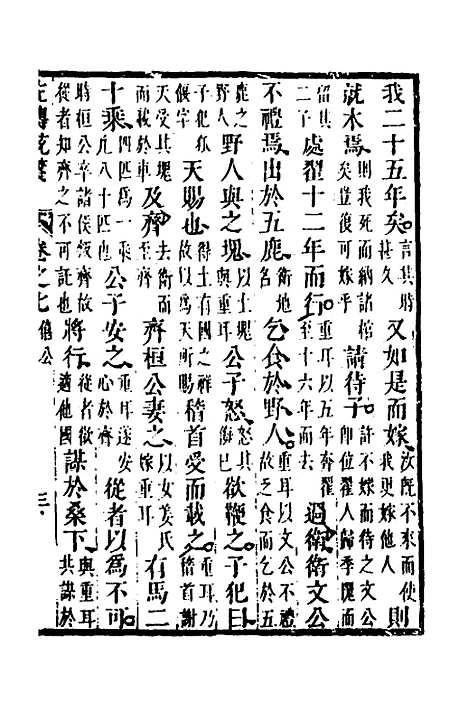 我二十五年矣言其時甚久又如是而嫁汝既不來而使我更嫁他人則
就木焉則我死而納諸棺矣豈復可嫁乎請待子許不嫁而待之文公即位翟人歸季隗而
留其二子處翟十二年而行重耳以五年奔翟至十六年而去過衛衛文公
不禮焉出於五鹿衛地名乞食於野人重耳以文公不禮故乏食而乞於五
鹿之野人野人與之塊以土塊與重耳公子怒怒其侮己欲鞭之子犯曰
子犯狐偃字天賜也得土有國之祥故以為天所賜稽首受而載之重耳乃稽首謝
天受其塊而載於車及齊去衛而至齊齊桓公妻之以女姜氏嫁重耳有馬二
十乘四匹為一乘凡八十四也公子安之重耳遂安心於齊從者以為不可
時桓公卒諸侯叛齊故從者知齊之不可託也將行從者欲適他國謀於桑下與重耳共謀於
左傳 卷之七 僖公 三